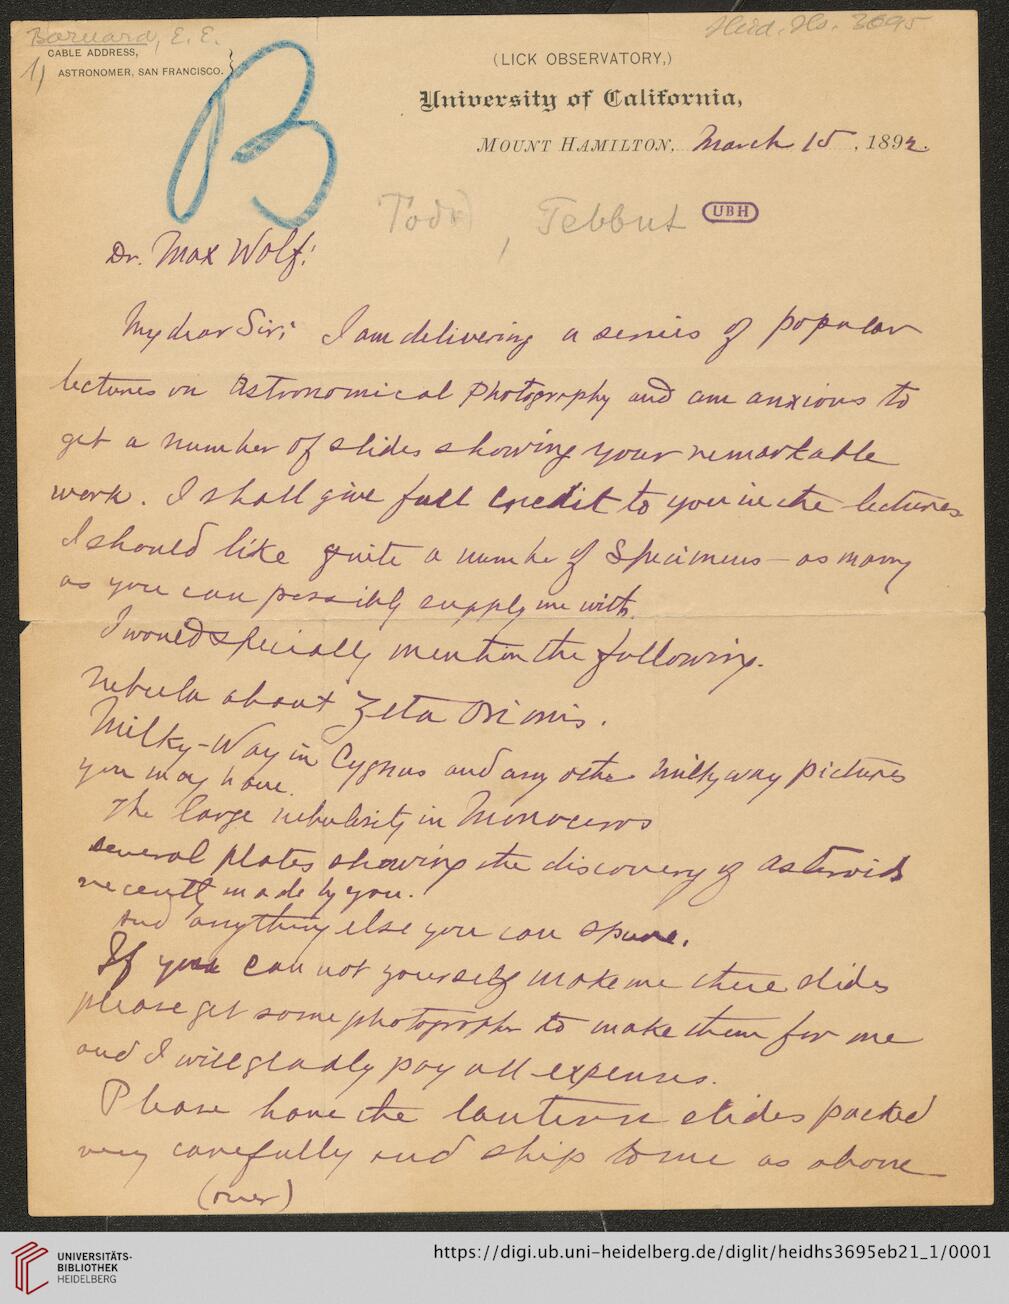 Barnard, E. E.
Heid. Hs. 3695
CABLE ADDRESS,
1) ASTRONOMER, SAN FRANCISCO.
B
(LICK OBSERVATORY,)
University of California,
MOUNT HAMILTON, March 15, 1892.
Todd, Tebbut
UBH
Dr. Max Wolf:
My dear Sir; I am delivering a series of popular
lectures on Astronomical Photography and am anxious to
get a number of slides showing your remarkable
work. I shall give full credit to you in the lectures
I should like quite a number of Specimens — as many
as you can possibly supply me with.
I would specially mention the following.
Nebula about Zeta Orionis.
Milky-Way in Cygnus and any other milky way pictures
you may have.
The large nebulosity in Monoceros
several plates showing the discovery of asteroids
recently made by you.
And anything else you can spare.
If you can not yourself make me these slides
please get some photographer to make them for me
and I will gladly pay all expenses.
Please have the lantern slides packed
very carefully and ship to me as above
(over)
UNIVERSITÄTS-
BIBLIOTHEK
HEIDELBERG
https://digi.ub.uni-heidelberg.de/diglit/heidhs3695eb21_1/0001